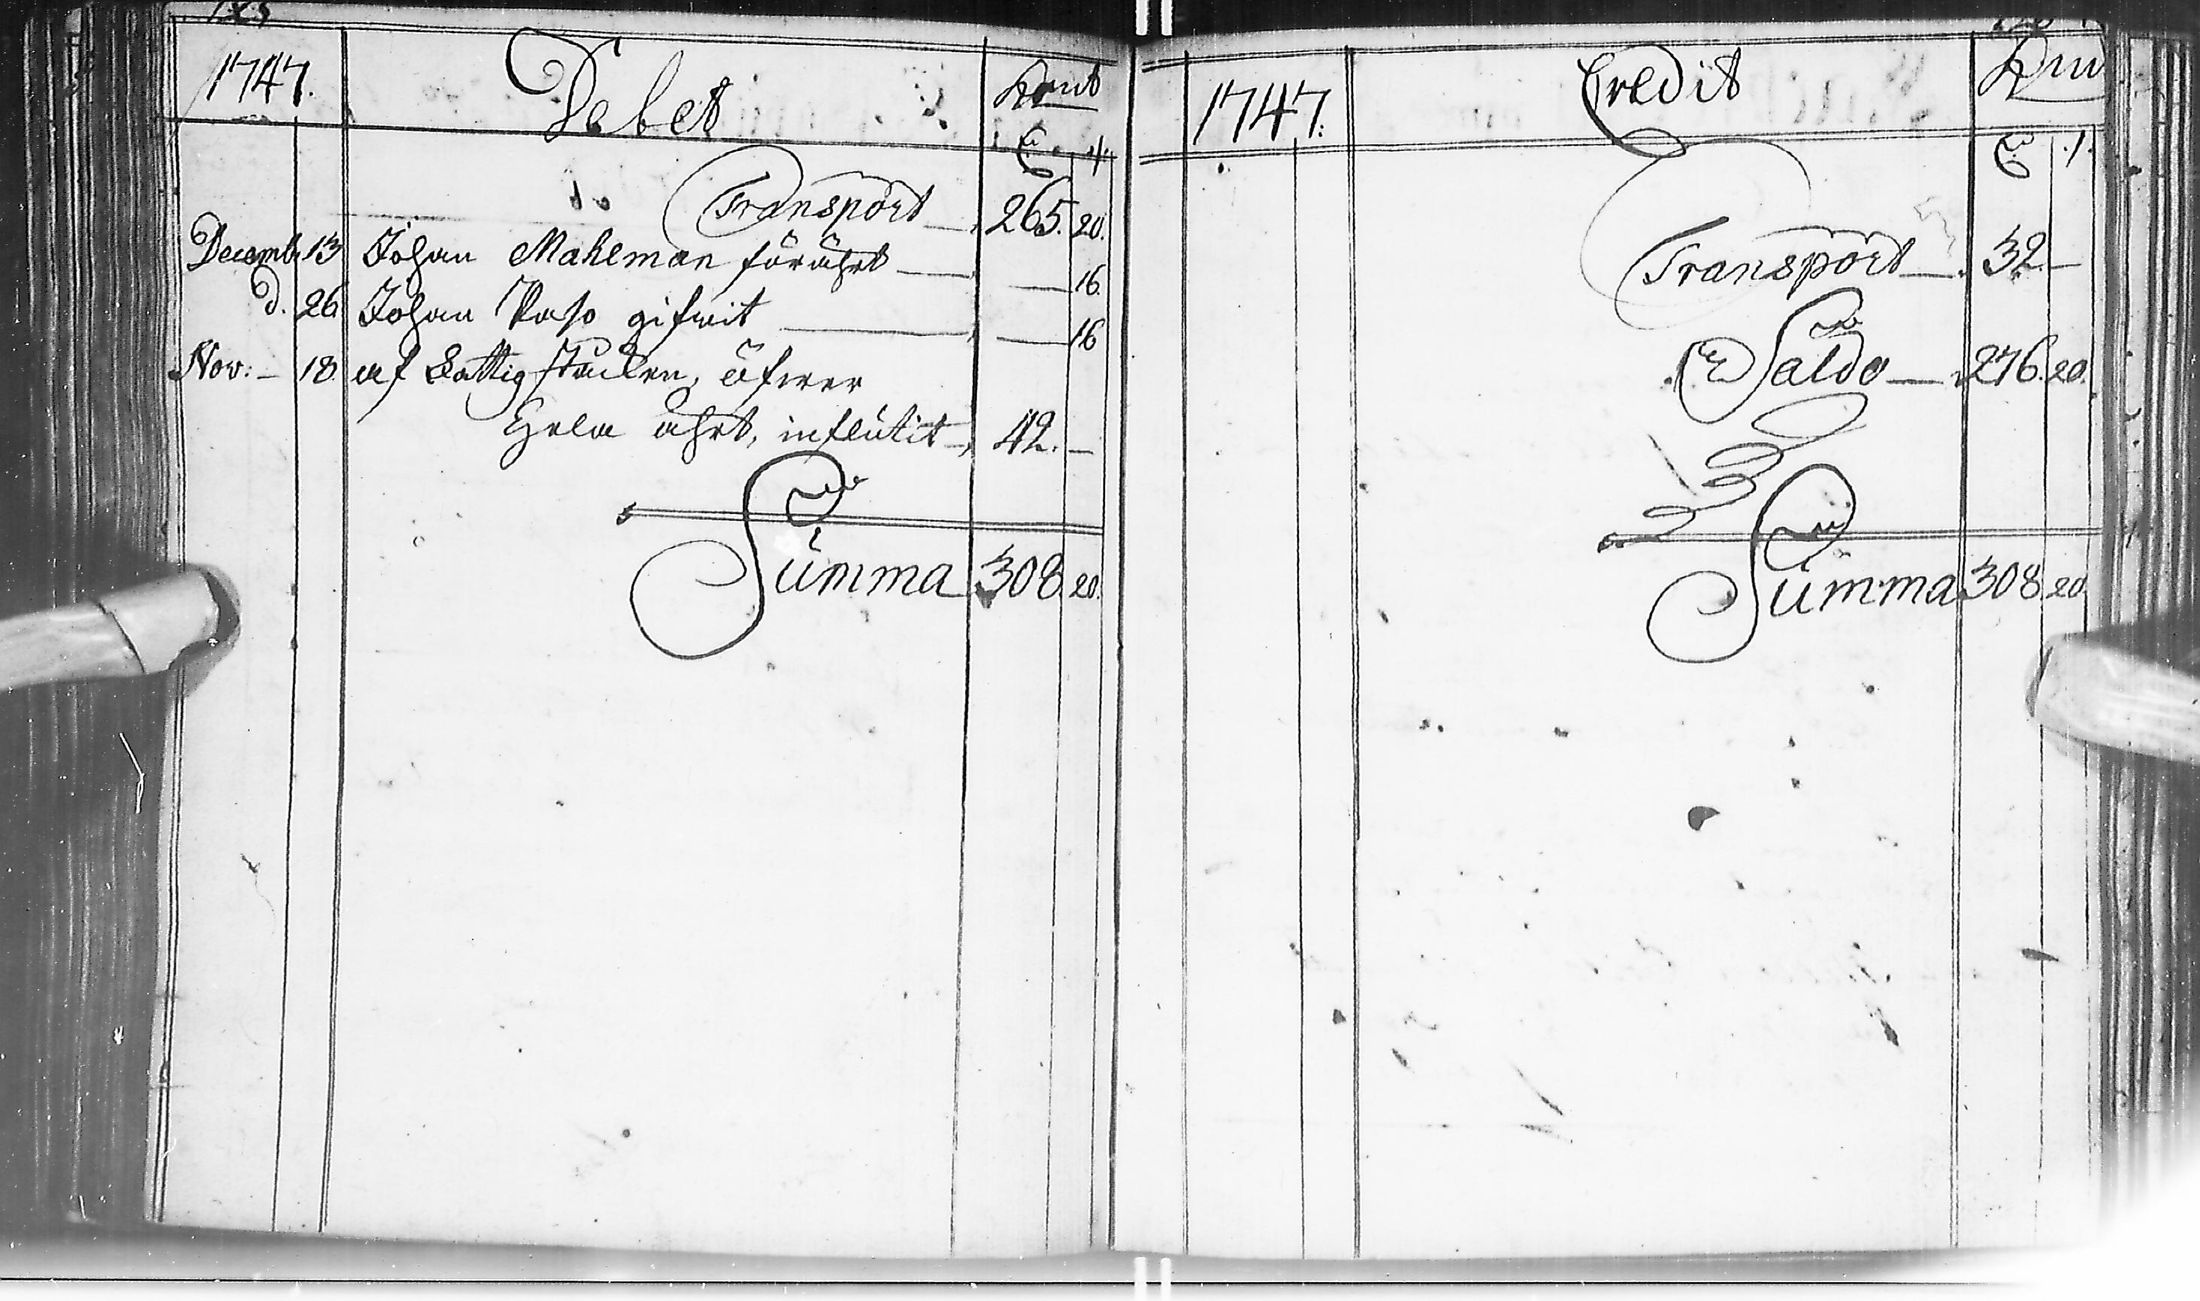 1747. Debet Kmt
Transport 265. 20.
Decemb. 13 Johan Makeman förährt — 16.
d. 26 Johan Paso gifwit — 16
Nov: — 18. af Fattig stocken, öfwer
Hela åhret, influtit — 42. —
Summa 308. 20.
1747. Credit Km
Transport — 32 —
Saldo — 276. 20.
Summa 308. 20.